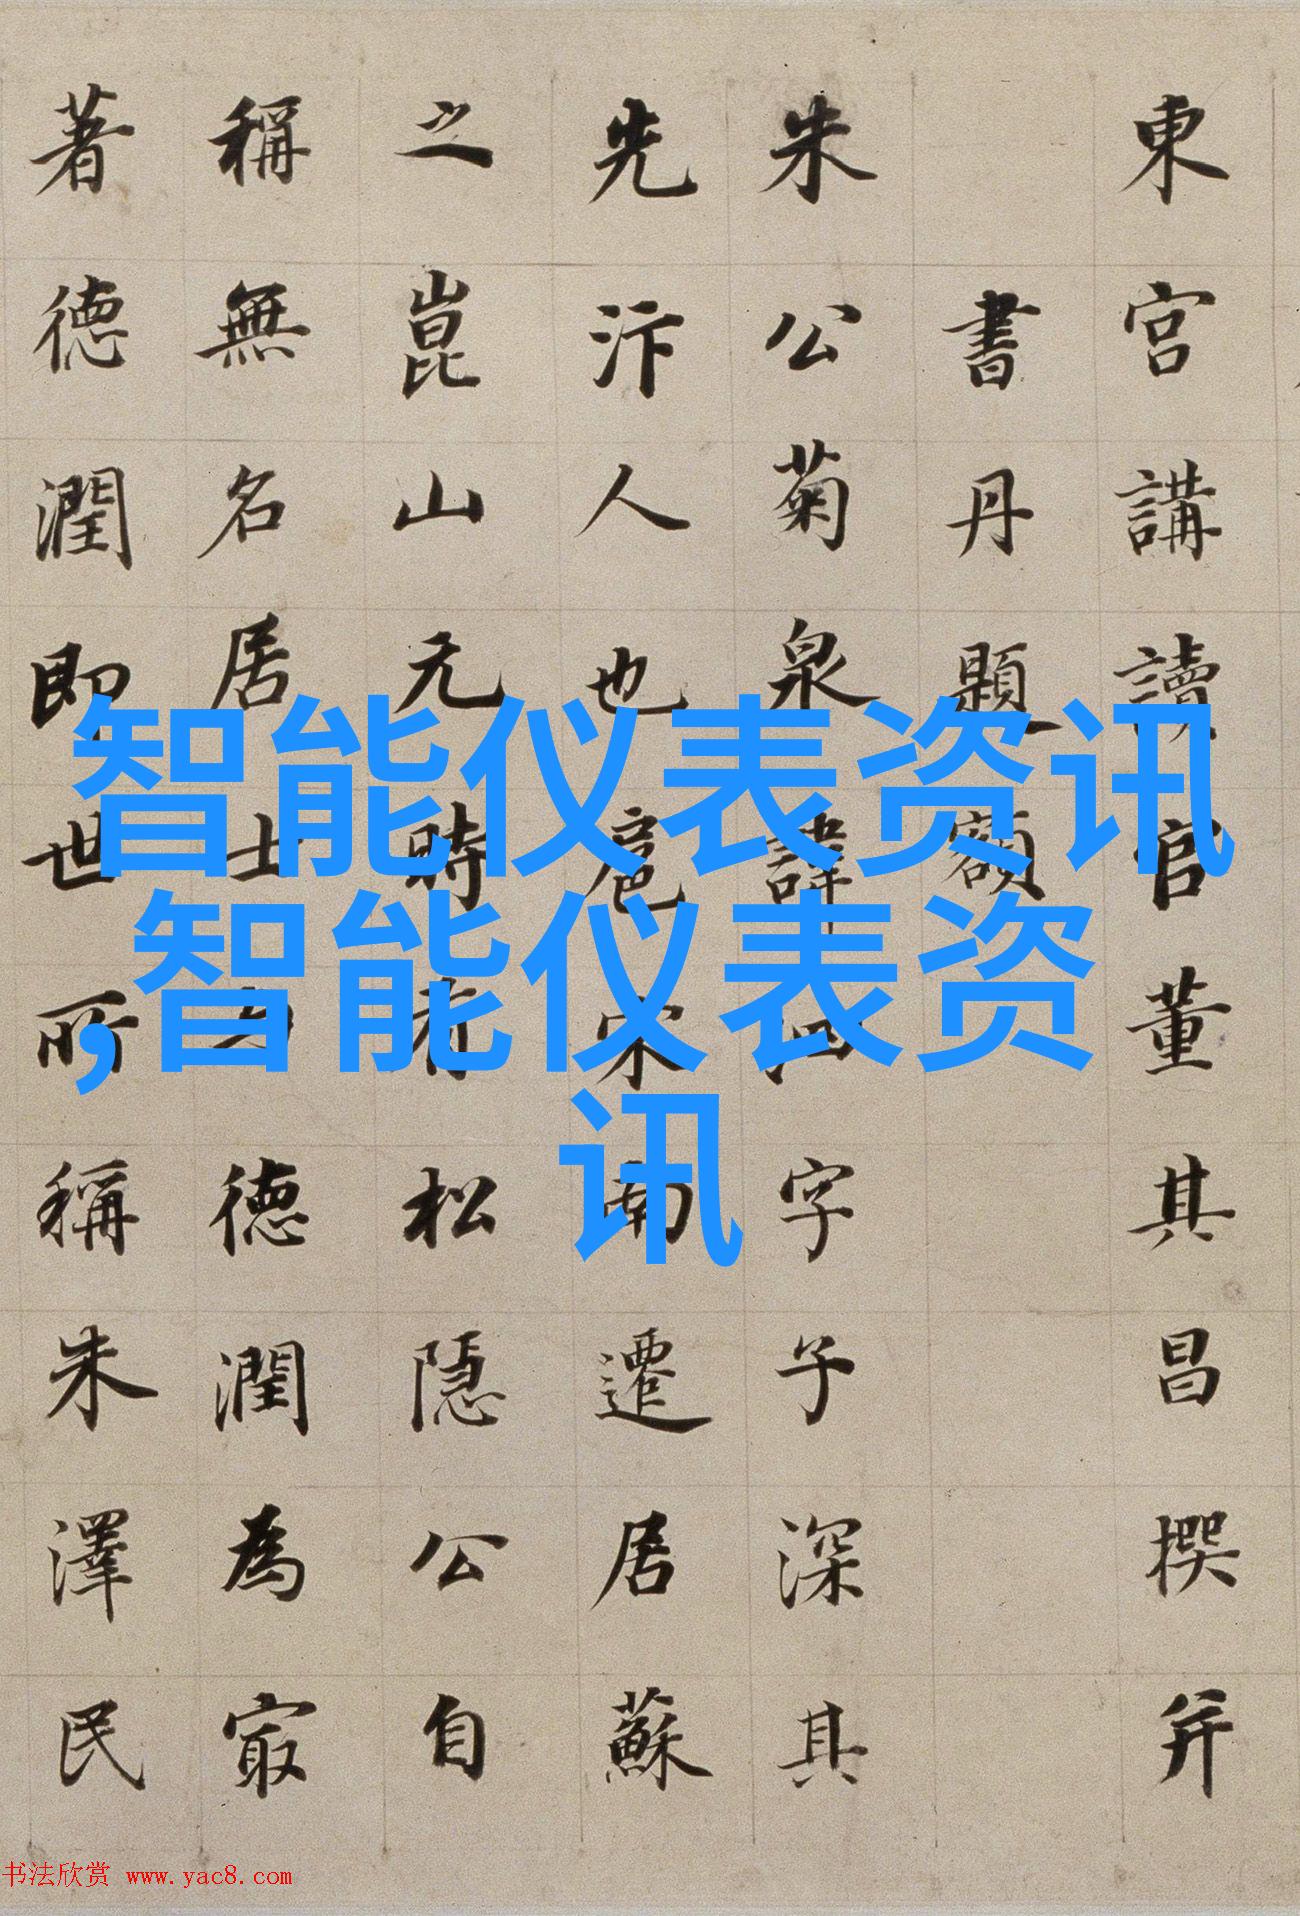 東宮講讀官董其昌撰并
書丹題額
朱公菊泉諱字子深其
先汴人也扈宋南遷居蘇
之崑山元時有松隱公自
稱無名居士德潤為最
著德潤即世所稱朱澤民
智能仪表资讯
,智能仪表资
讯
书法欣赏 www.yac8.com